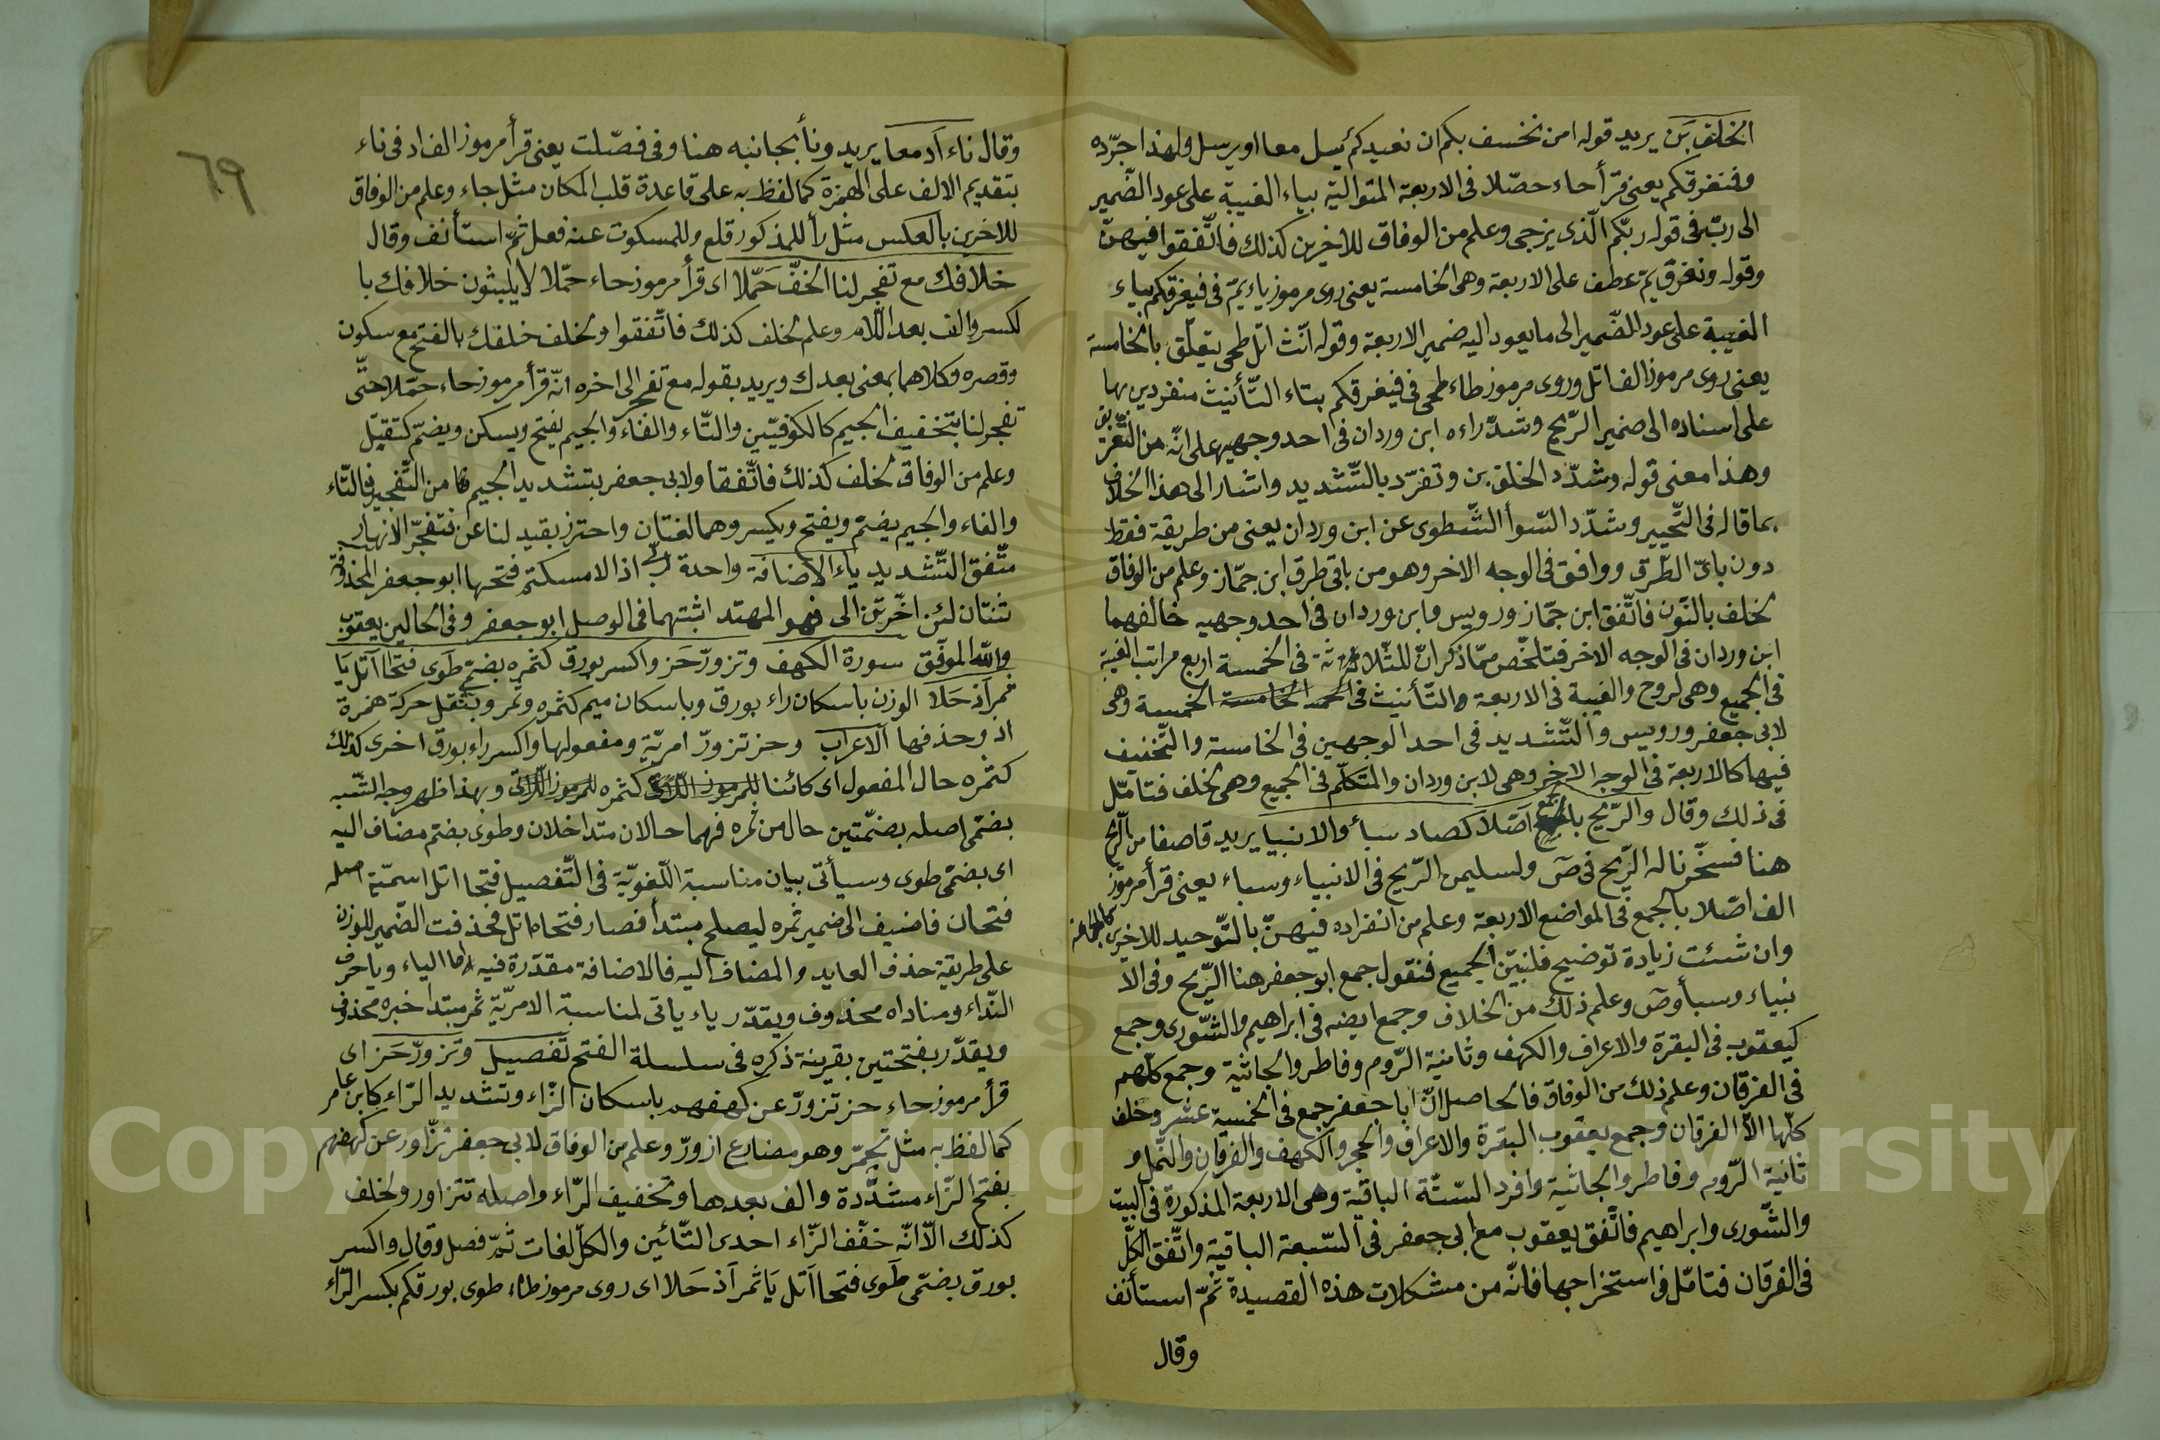 الخلف بن يريد قوله امن نخسف بكم ان نعيدكم نرسل معا او يرسل ولهذا جرّده
وفنغرقكم يعنى قرأ حاء حصّلا فى الاربعة المتوالية بياء الغيبة على عود الضّمير
الى ربّ فى قوله ربّكم الّذى يزجى وعلم من الوفاق للاخرين كذلك فاتّفقوا فيهنّ
وقوله ونغرق يم عطف على الاربعة وهى الخامسة يعنى روى مرموز ياء يمّ فى فيغرقكم بياء
الغيبة على عود الضّمير الى ما يعود اليه ضمير الاربعة وقوله انّث اتل طمى يتعلّق بالخامسة
يعنى روى مرموز الف اتل وروى مرموز طاء طمى فى فيغرقكم بتاء التّأنيث منفردين بها
على اسناده الى ضمير الرّيح وشدّ راءه ابن وردان فى احد وجهيه على انّه من التّغريق
وهذا معنى قوله وشدّد الخلف بن وتفرّد بالتّشديد واشار الى هذا الخلاف
بما قاله فى التّحبير وشدّد السّوأ الشّطوى عن ابن وردان يعنى من طريقة فقط
دون باقى الطّرق ووافق فى الوجه الاخر وهو من باقى طرق ابن جمّاز وعلم من الوفاق
لخلف بالنّون فاتّفق ابن جمّاز ورويس وابن وردان فى احد وجهيه خالفهما
ابن وردان فى الوجه الاخر فتلخّص ممّا ذكر انّ للثّلاثة فى الخمسة اربع مراتب الغيبة
فى الجميع وهى لروح والغيبة فى الاربعة والتّأنيث فى الخامسة الخمسة وهى
لابى جعفر ورويس والتّشديد فى احد الوجهين فى الخامسة والتّخفيف
فيها كالاربعة فى الوجه الاخر وهى لابن وردان والمتكلّم فى الجميع وهى لخلف فتامّل
فى ذلك وقال والرّيح بالجمع اصّلا كصاد سبأ والانبيا يريد قاصفا من الرّيح
هنا فسخّرنا له الرّيح فى صٓ ولسليمن الرّيح فى الانبياء وسباء يعنى قرأ مرموز
الف اصّلا بالجمع فى المواضع الاربعة وعلم من انفراده فيهنّ بالتّوحيد للاخرين كالجماعة
وان شئت زيادة توضيح فلنبيّن الجميع فنقول جمع ابو جعفر هنا الرّيح وفى الا
نبياء وسبأ وصٓ وعلم ذلك من الخلاف وجمع ايضه فى ابراهيم والشّورى وجمع
كيعقوب فى البقرة والاعراف والكهف وثانية الرّوم وفاطر والجاثية وجمع كلّهم
فى الفرقان وعلم ذلك من الوفاق فالحاصل انّ ابا جعفر جمع فى الخمسة عشر وخلف
كلّها الاّ الفرقان وجمع يعقوب البقرة والاعراف والحجر والكهف والفرقان والنّمل و
ثانية الرّوم وفاطر والجاثية وافرد السّتّة الباقية وهى الاربعة المذكورة فى البيت
والشّورى وابراهيم فاتّفق يعقوب مع ابى جعفر فى السّبعة الباقية واتّفق الكلّ
فى الفرقان فتامّل فى استخراجها فانّه من مشكلات هذه القصيدة ثمّ استأنف
وقال
٦٩
وقال ناء اد معا يريد ونأ بجانبه هنا وفى فصّلت يعنى قرأ مرموز الف اد فى ناء
بتقديم الالف على الهمزة كما لفظ به على قاعدة قلب المكان مثل جاء وعلم من الوفاق
للاخرين بالعكس مثل رأ للمذكور قلع وللمسكوت عنه فعل ثمّ استأنف وقال
خلافك مع تفجر لنا الخفّ حمّلا اى قرأ مرموز حاء حمّلا لا يلبثون خلافك با
لكسر والف بعد اللّام وعلم لخلف كذلك فاتّفقوا ولخلف خلفك بالفتح مع سكون
وقصره وكلاهما بمعنى بعدك ويريد بقوله مع تفجر الى اخره انّه قرأ مرموز حاء حمّلا حتّى
تفجر لنا بتخفيف الجيم كالكوفيّين والتّاء والفاء والجيم يفتح ويسكن ويضمّ كتقتل
وعلم من الوفاق لخلف كذلك فاتّفقا ولابى جعفر بتشديد الجيم من التّفجير فالتّاء
والفاء والجيم يضمّ ويفتح ويكسر وهما لغتان واحترز بقيد لنا عن فتفجّر الانهار
متّفق التّشديد ياء الاضافة واحدة ربّى اذا لامسكتم فتحها ابو جعفر المحذوفة
ثنتان لئن اخّرتن الى فهو المهتد اثبتهما فى الوصل ابو جعفر وفى الحالين يعقوب
واللّه الموفّق سورة الكهف وتزورّ حز واكسر بورق كثمره بضمّى طوى فتحا اتل يا
ثمر اذ حلا الوزن باسكان راء بورق وباسكان ميم كثمره وثمر وبنقل حركة همزة
اذ وحذفها الاعراب وحز تزورّ امريّة ومفعولها واكسر راء بورق اخرى كذلك
كثمره حال المفعول اى كائنا كثمره وبهذا ظهر وجه الشّبه
بضمّى اصله بضمّتين حال من ثمره فهما حالان متداخلان وطوى بضمّ مضاف اليه
اى بضمّى طوى وسيأتى بيان مناسبة اللّغويّة فى التّفصيل فتحا اتل اسميّة اصله
فتحان فاضيف الى ضمير ثمره ليصلح مبتدأ فصار فتحاه اتل فحذفت الضّمير للوزن
على طريقة حذف العايد والمضاف اليه فالاضافة مقدّرة فيه اما الياء ويا حرف
النّداء ومناداه محذوف ويقدّر ياء ياتى لمناسبة الامريّة ثمر مبتدا خبره محذوف
ويقدّر بفتحتين بقرينة ذكره فى سلسلة الفتح تفصيل وتزورّ حز اى
قرأ مرموز حاء حز تزورّ عن كهفهم باسكان الزّاء وتشديد الرّاء كابن عامر
كما لفظ به مثل تحمّر وهو مضارع ازورّ وعلم من الوفاق لابى جعفر تزّاور عن كهفهم
بفتح الزّاء مشدّدة والف بعدها وتخفيف الرّاء واصله تتزاور ولخلف
كذلك الاّ انّه خفّف الزّاء احدى التّائين والكلّ لغات ثمّ فصل وقال واكسر
بورق بضمّى طوى فتحا اتل يا ثمر اذ حلا اى روى مرموز طاء طوى بورقكم بكسر الرّاء
Copyright © King Saud University